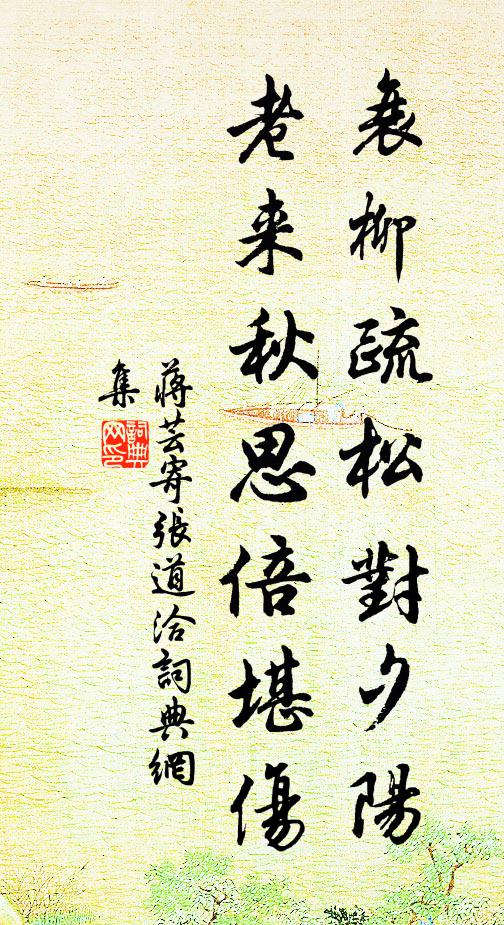 衰柳疏松對夕陽
老来秋思倍堪傷
蔣芸寄張道洽詞典網
集
詞典網印